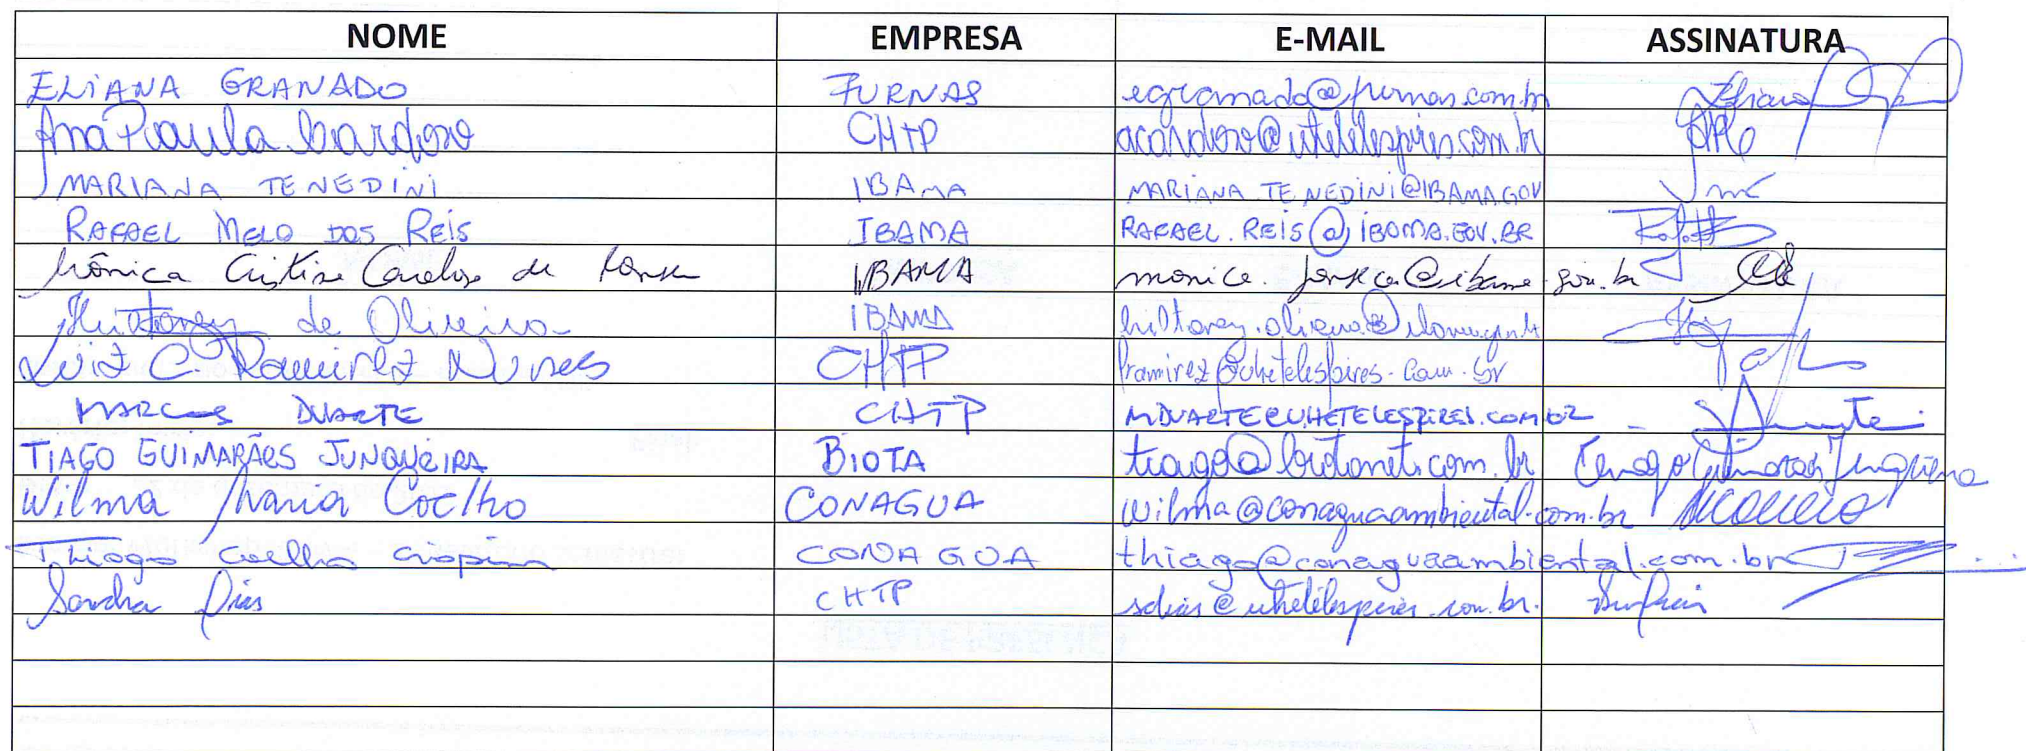 NOME EMPRESA E-MAIL ASSINATURA
ELIANA GRANADO FURNAS egranado@furnas.com.br Eliana
Ana Paula Cardoso CHTP acardoso@uhetelespires.com.br
MARIANA TENEDINI IBAMA MARIANA.TENEDINI@IBAMA.GOV
RAFAEL MELO DOS REIS IBAMA RAFAEL.REIS@IBAMA.GOV.BR
Mônica Cristina Cardoso de Fonseca IBAMA monica.fonseca@ibama.gov.br
de Oliveira IBAMA
Luiz C. Ramirez Nunes CHTP lramirez@uhetelespires.com.br
MARCOS DUARTE CHTP MDUARTE@UHETELESPIRES.COM.BR
TIAGO GUIMARÃES JUNQUEIRA BIOTA tiago@biotanet.com.br Tiago Guimarães Junqueira
Wilma Maria Coelho CONAGUA wilma@conaguaambiental.com.br
Thiago Coelho Crispim CONAGUA thiago@conaguaambiental.com.br
Sandra Dias CHTP sdias@uhetelespires.com.br.